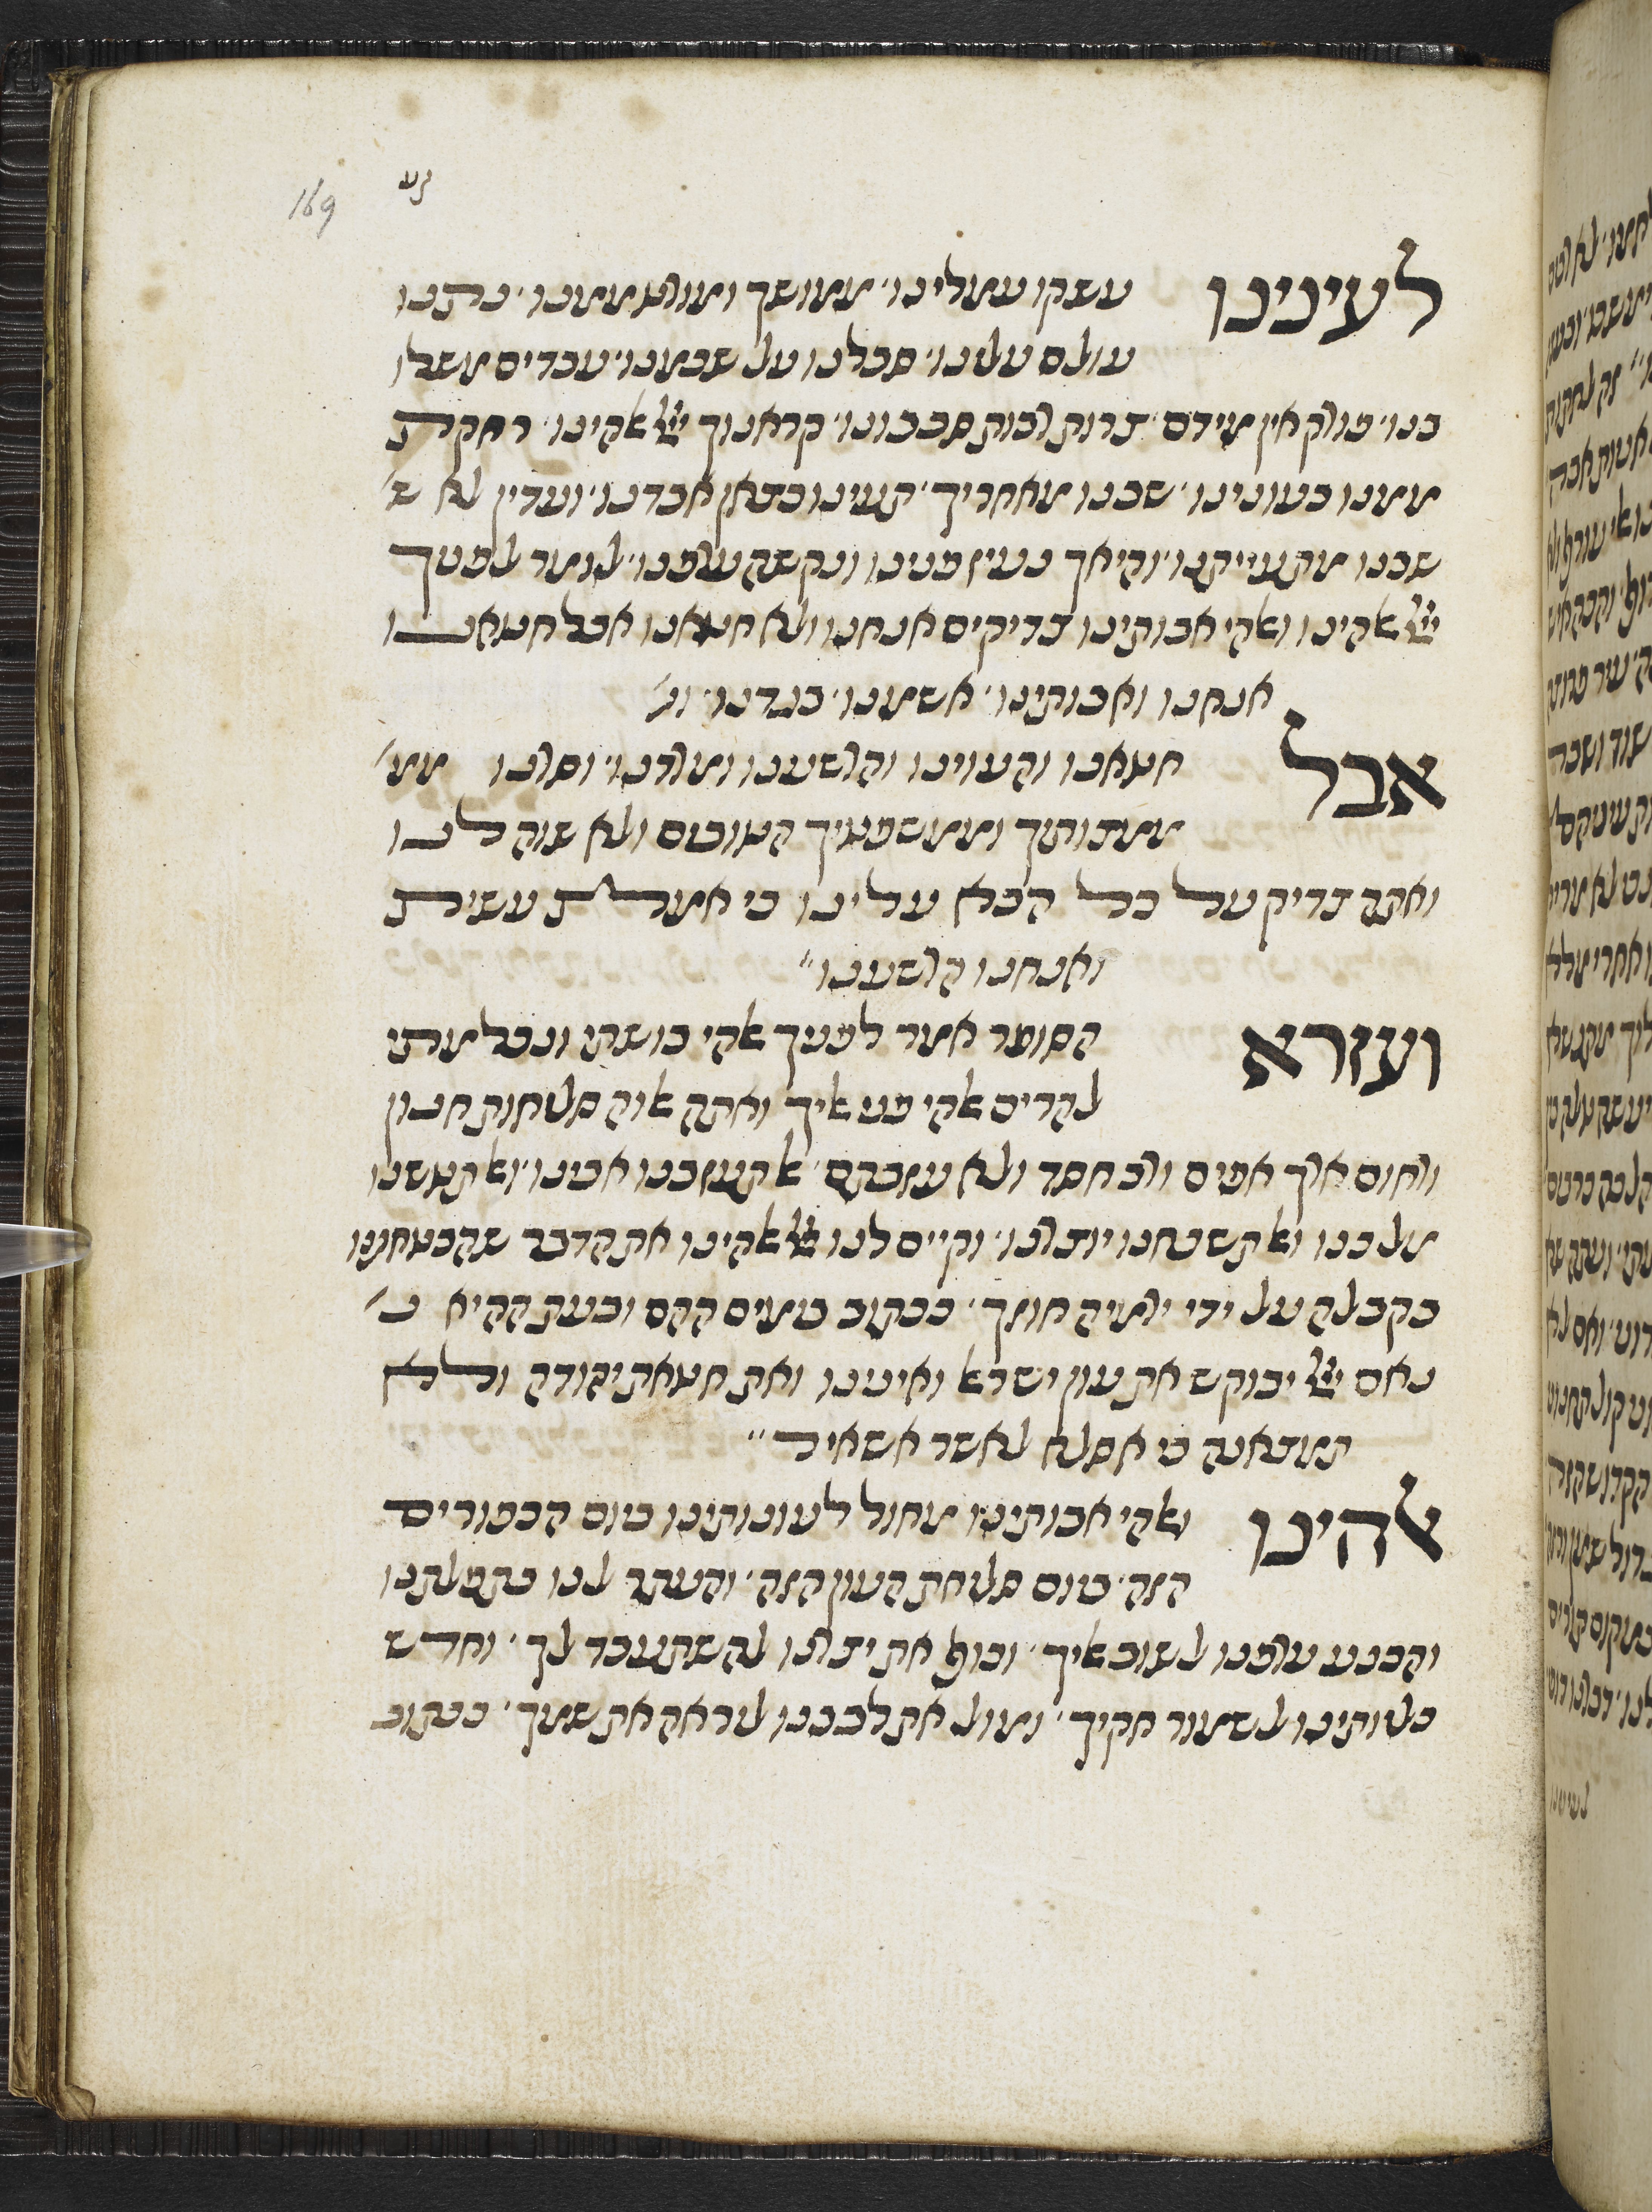 169
לעינינו עשקו עמלינו. ממושך ומורט ממנו. נתנו
עולם עלינו. סבלנו על שכמנו. עבדים משלו
בנו. פורק אין מידם. צרות רבות סבבונו. קראנוך יי אלהינו. רחקת
ממנו בעונינו. שבנו מאחריך. תעינו כצאן אבדנו. ועדיין לא ש׳
שבנו מתעייתנו. והיאך נעיז פנינו ונקשה ערפנו. לומר לפניך
יי אלהינו ואלהי אבותינו צדיקים אנחנו ולא חטאנו אבל חטאנו
אנחנו ואבותינו. אשמנו. בגדנו. וג׳
אבל חטאנו והעוינו והרשענו ומרדנו. וסרנו ממ׳
ממצותיך וממשפטיך הטובים ולא שוה לנו
ואתה צדיק על כל הבא עלינו כי אמת עשית
ואנחנו הרשענו״
ועזרא הסופר אמר לפניך אלהי בושתי ונכלמתי
להרים אלהי פני אליך ואתה אלוה סליחות חנון
ורחום ארך אפים ורב חסד ולא עזבתם. אל תעזבנו אבינו. ואל תטשנו
מלכנו ואל תשכחנו יוצרנו. וקיים לנו יי אלהינו את הדבר שהבטחתנו
בקבלה על ידי ירמיה חוזך. ככתוב בימים ההם ובעת ההיא נ׳
נאם יי יבוקש את עון ישראל ואיננו ואת חטאת יהודה ולא
תמצאנה כי אסלח לאשר אשאיר״
אלהינו ואלהי אבותינו מחול לעונותינו ביום הכפורים
הזה. ביום סליחת העון הזה. והעתר לנו בתפלתנו
והכנע ערפנו לשוב אליך. וכוף את יצרנו להשתעבד לך. וחדש
כליותינו לשמור חקיך. ומול את לבבנו ליראה את שמך. ככתוב